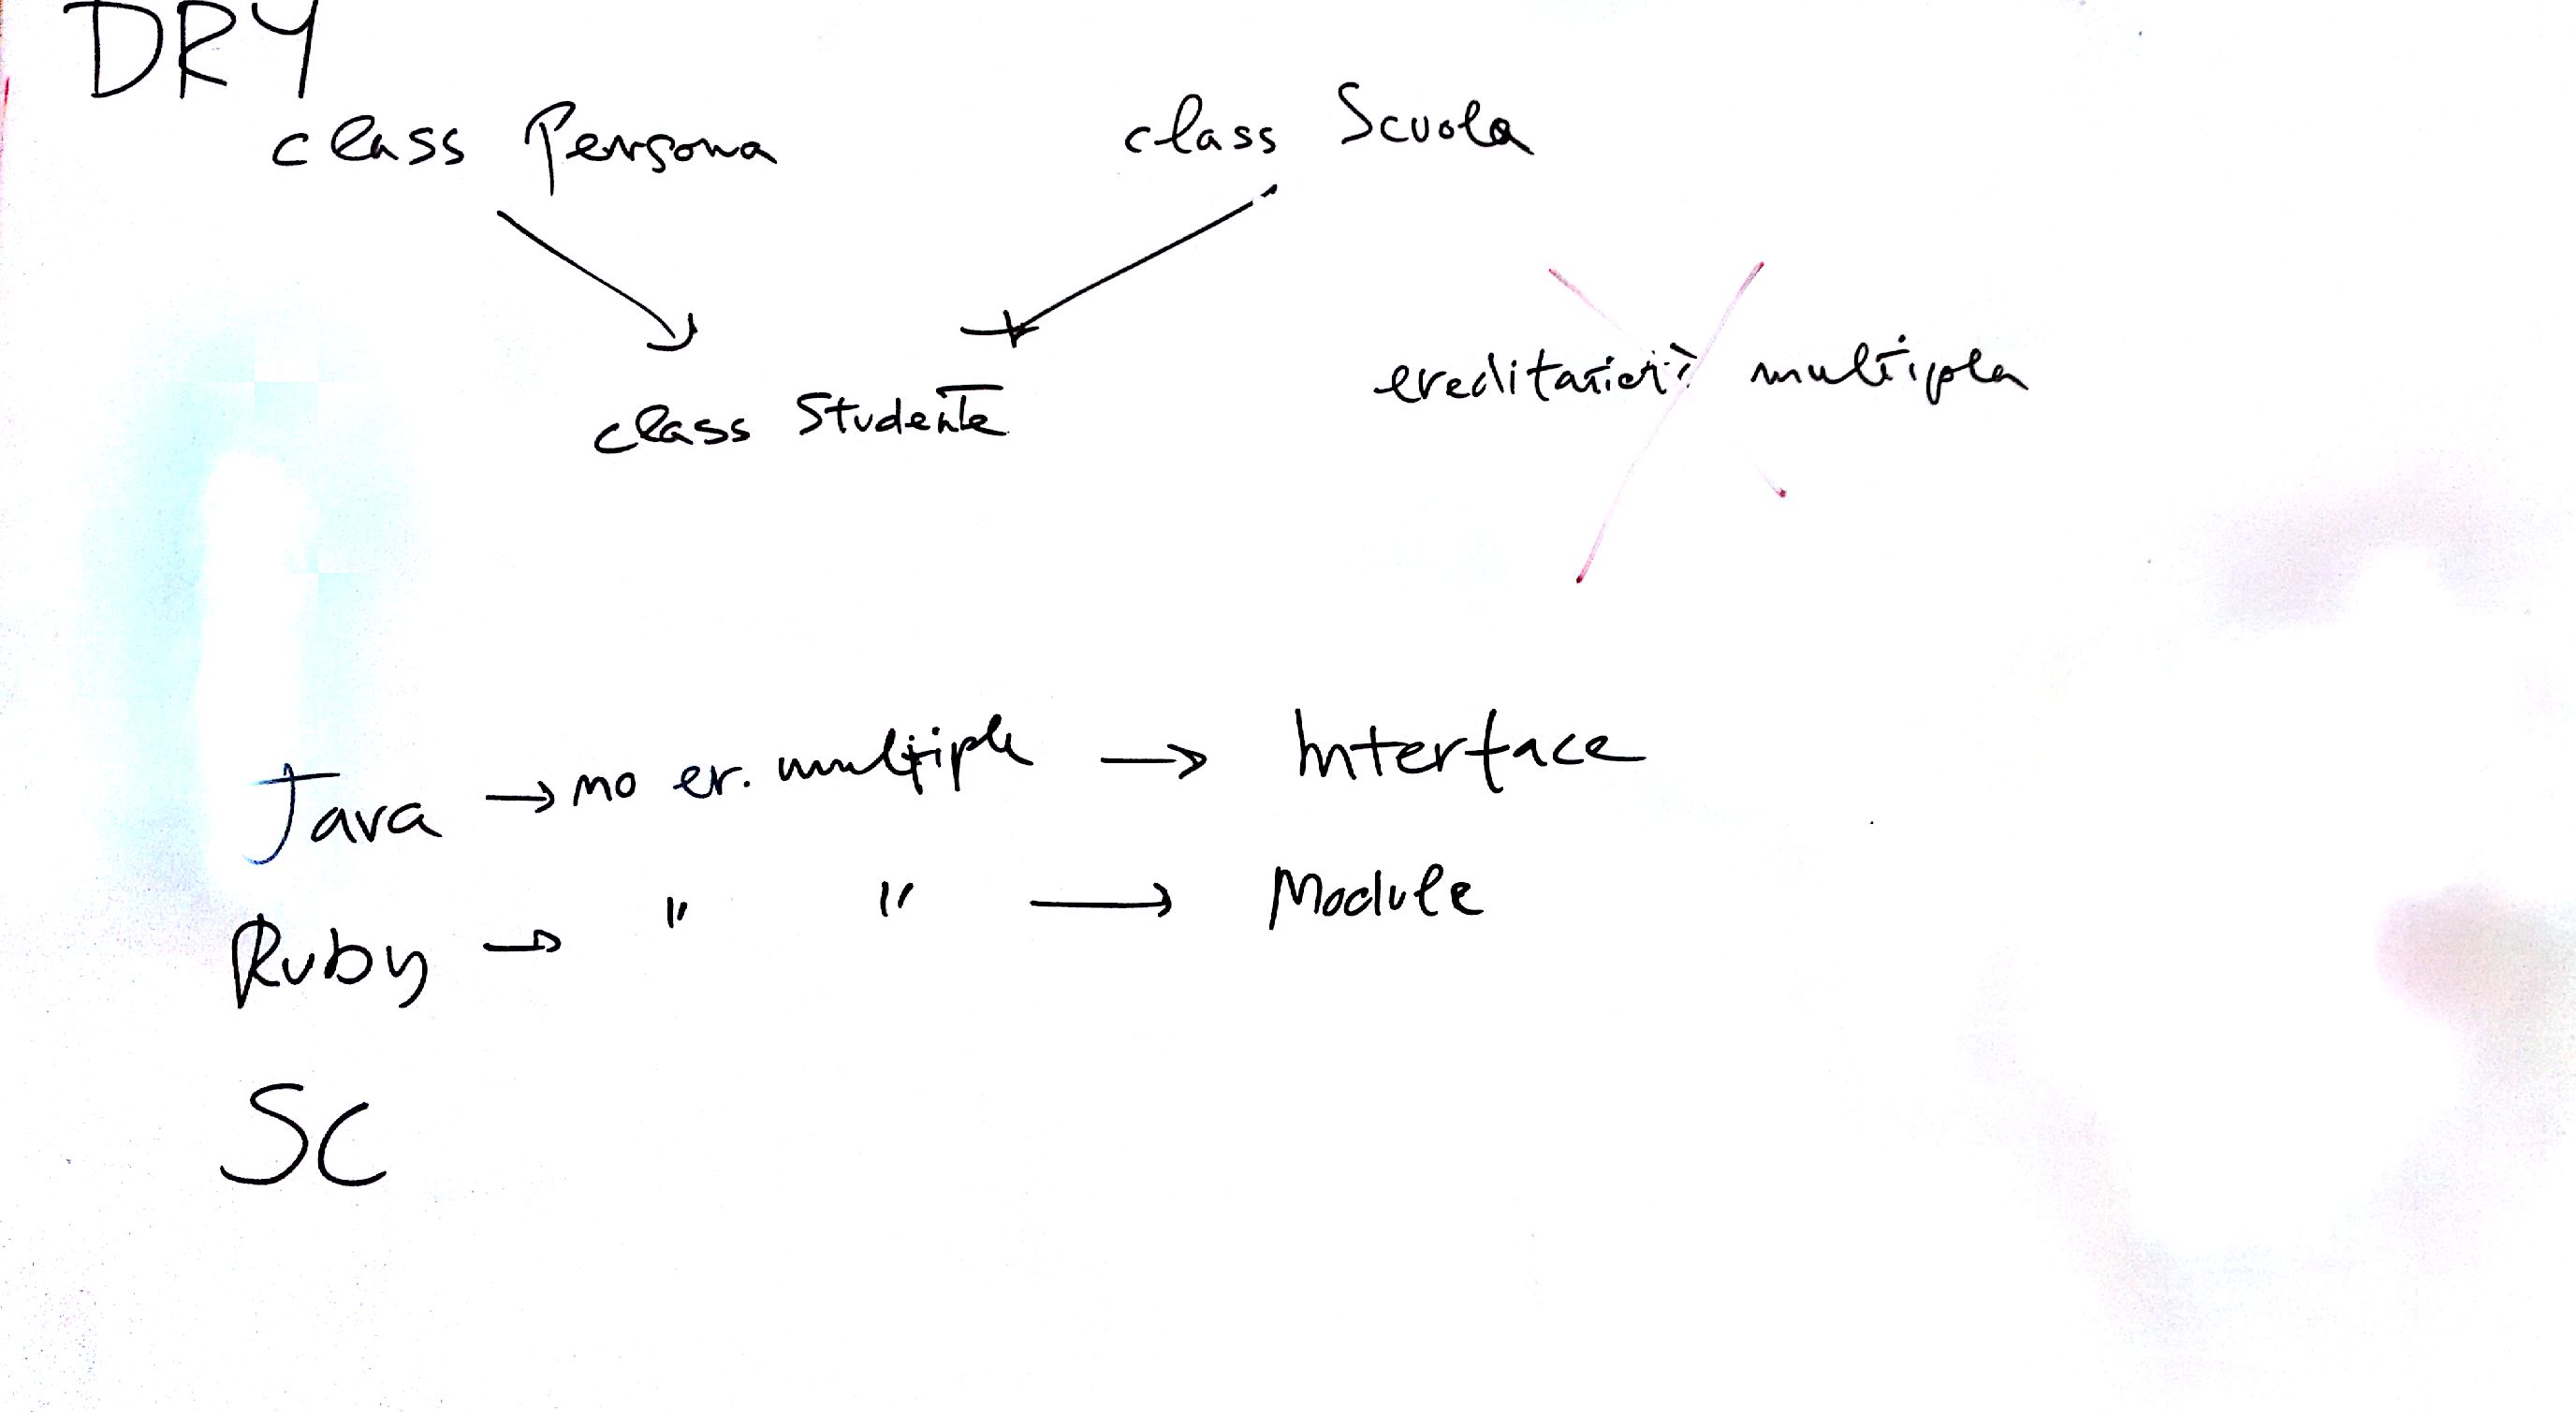 DRY
class Persona class Scuola
class Studente
ereditarietà multipla
Java → no er. multipla → Interface
Ruby → " " → Module
SC